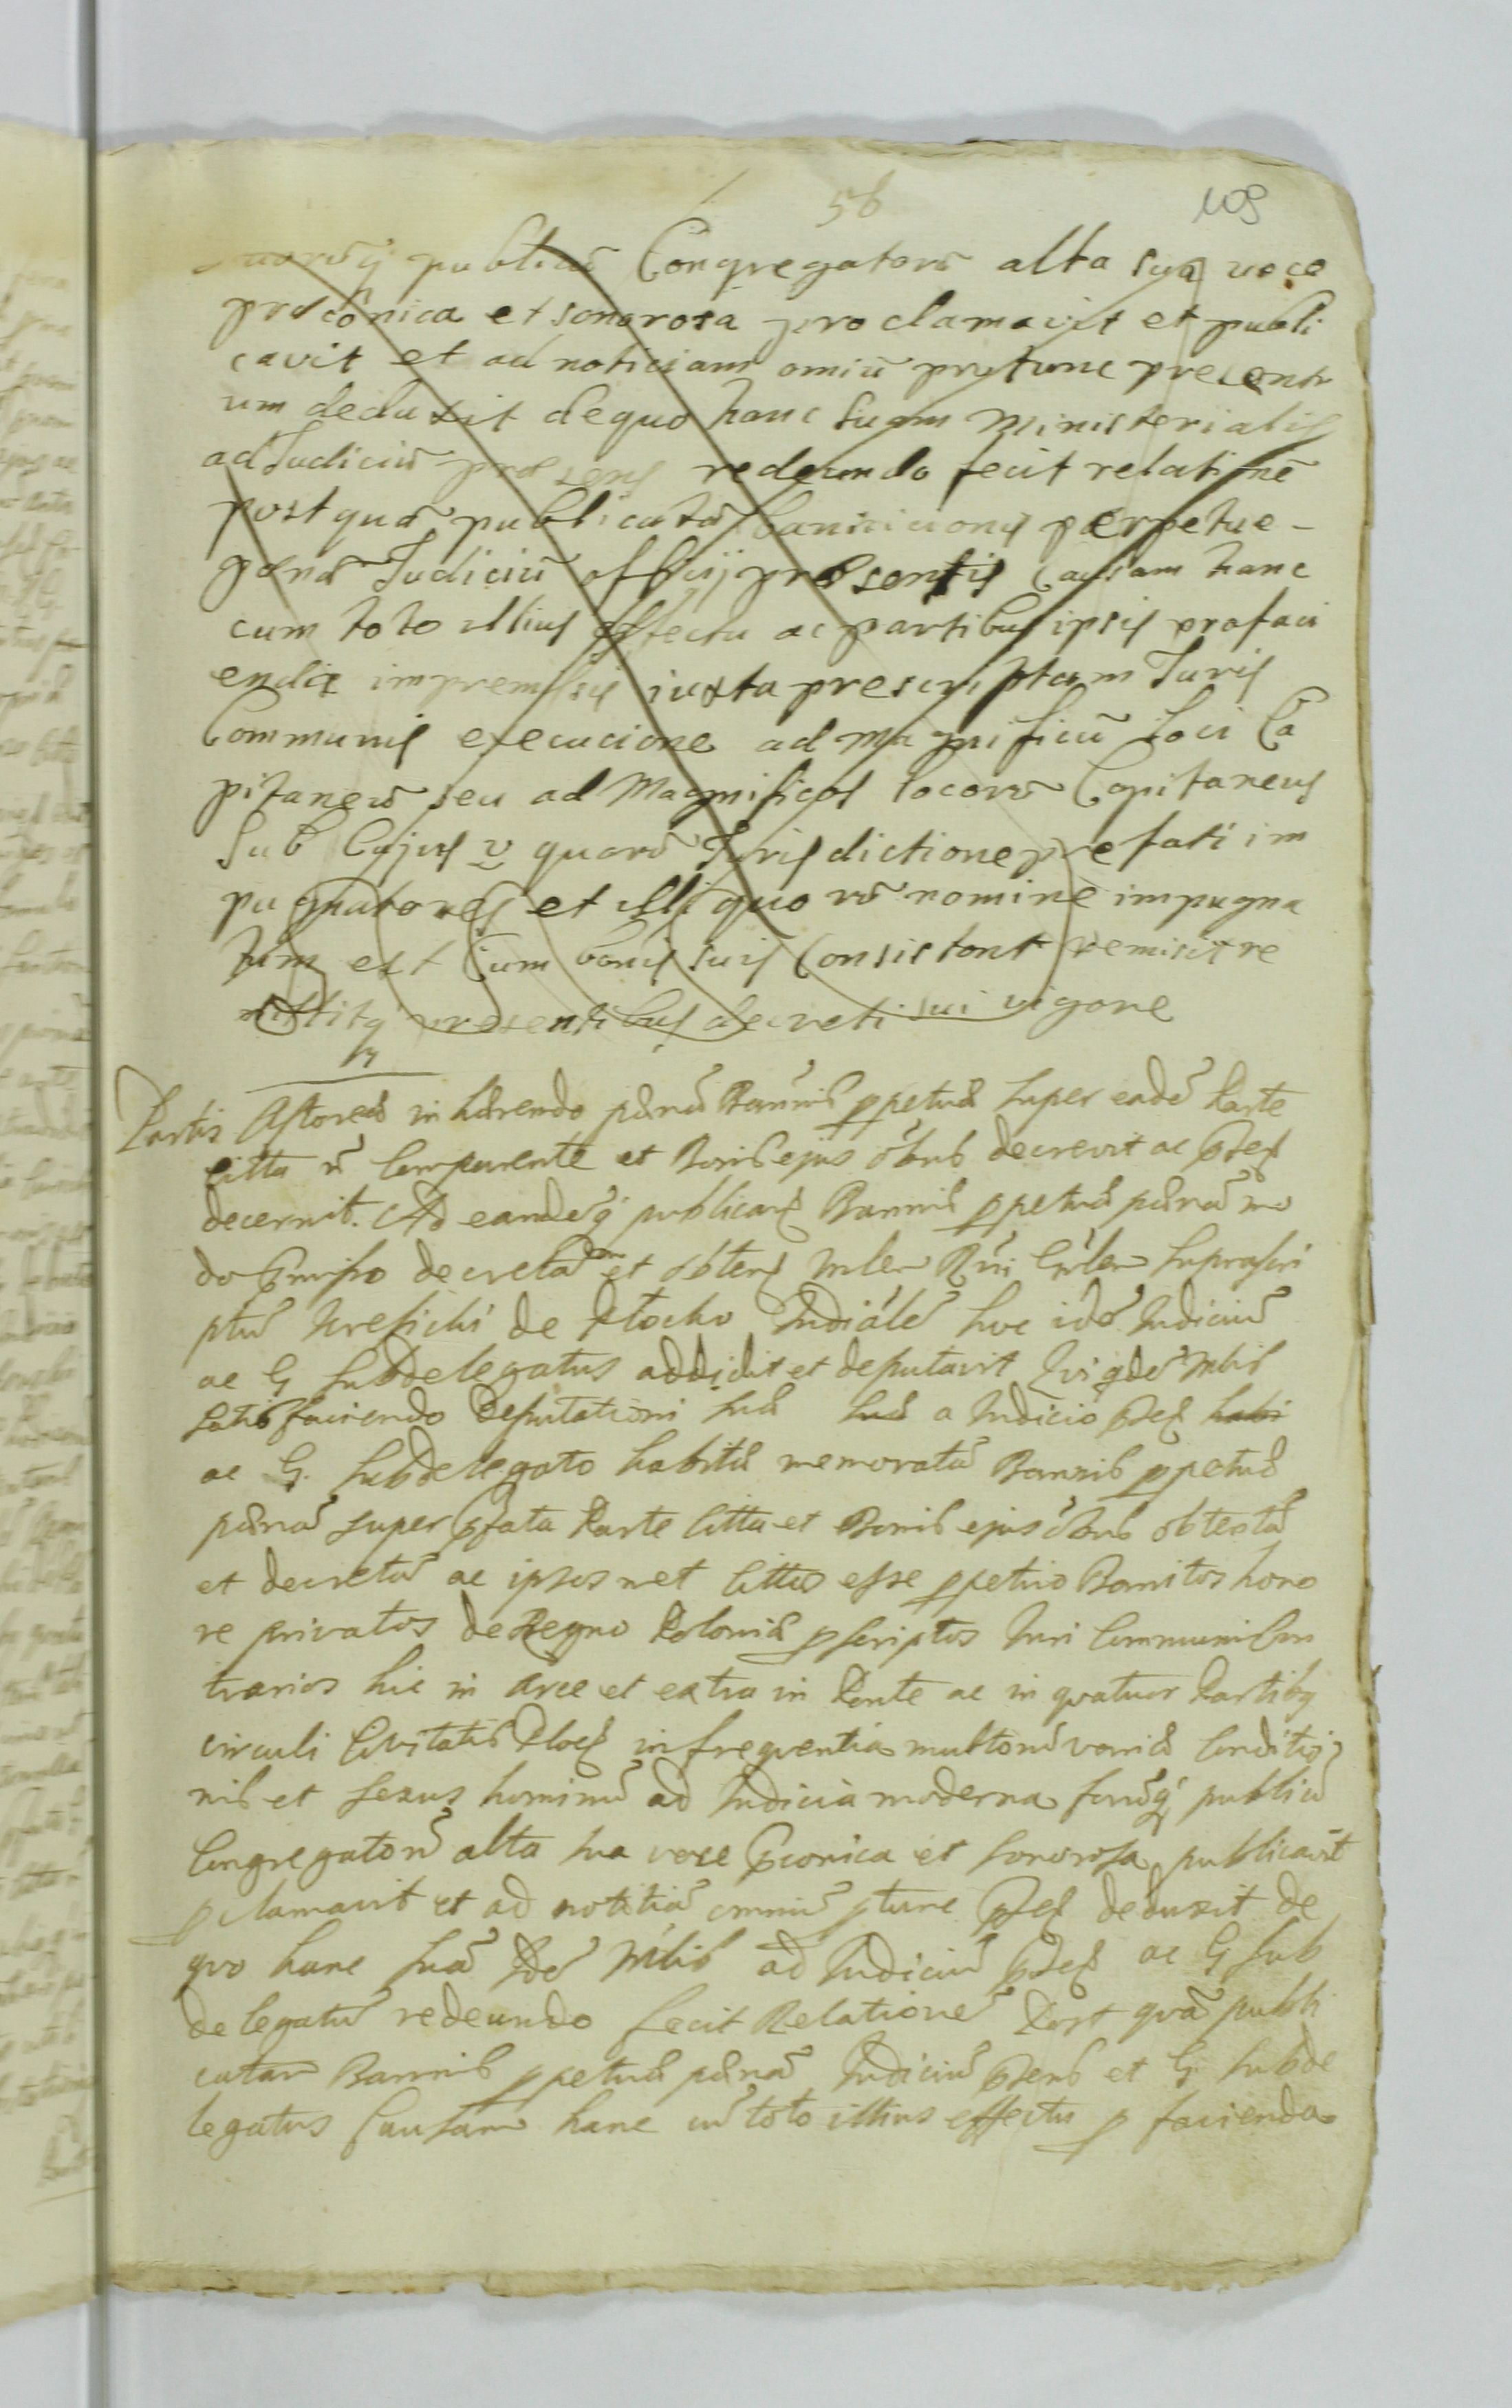 56
109
publicū Congregatorū alta sua voce
preconica et sonorosa proclamavit et publi
cavit et ad noticiam omiū protunc presenti
um deduxit de quo hanc suam Ministerialis
ad Judiciū presens redeundo fecit relationē
post quā publicatā bannicionis perpetue
penā Judiciū officij presentis Causam hanc
cum toto illius effectu ac partibus ipsis profaci
enda in premissis iuxta prescriptum Juris
Communis execucione ad Magnificū loci Ca
pitaneū seu ad Magnificos locorū Capitaneus
sub Cujus v quorū Jurisdictione prefati im
pugnatores et illi quo rū nomine impugna
tum est Cum bonis suis Consistunt remisit re
mittitq presentibus decreti sui vigore
Partis Actoreæ inhærendo pænā Bannis ppetuæ super eadē Parte
citta n̄ comparente et Bonis ejus ōbus decrevit ac pns
decernit. Ad eandēq publicans Bannis ppetuæ pænā mo
do præmisso decretā et obtens Mlem Rñi Gñlem suprascri
ptū de Płocko Judiciālē hoc idē Judiciū
ac G subdelegatus addidit et deputavit Qvi qdē Mlis
satisfaciendo deputationi suæ suæ a Judicio pns habi
ac G. subdelegato habitæ memoratā Bannis ppetuæ
pænā super pfata Parte citta et Bonis ejus ōbus obtentā
et decretā ac ipsosmet cittos esse ppetuo Bannitos hono
re privatos de Regno Poloniæ pscriptos Juri Communi con
trarios hic in Arce et extra in Ponte ac in qvatuor Partibq
circuli Civitatis Ploc in freqventia multorū variæ conditio
nis et sexus hominū ad Judicia moderna forūq publicū
Congregatorū alta sua voce pconica et sonorosa publicavit
pclamavit et ad notitiā omniū ptunc pns deduxit de
qvo hanc suā idē Mlis ad Judiciū pns ac G sub
delegatū redeundo fecit Relationē Post qvā publi
catam Bannis ppetuæ pænā Judiciū pens et G subde
legatus Causam hanc cū toto illius effectu p facienda